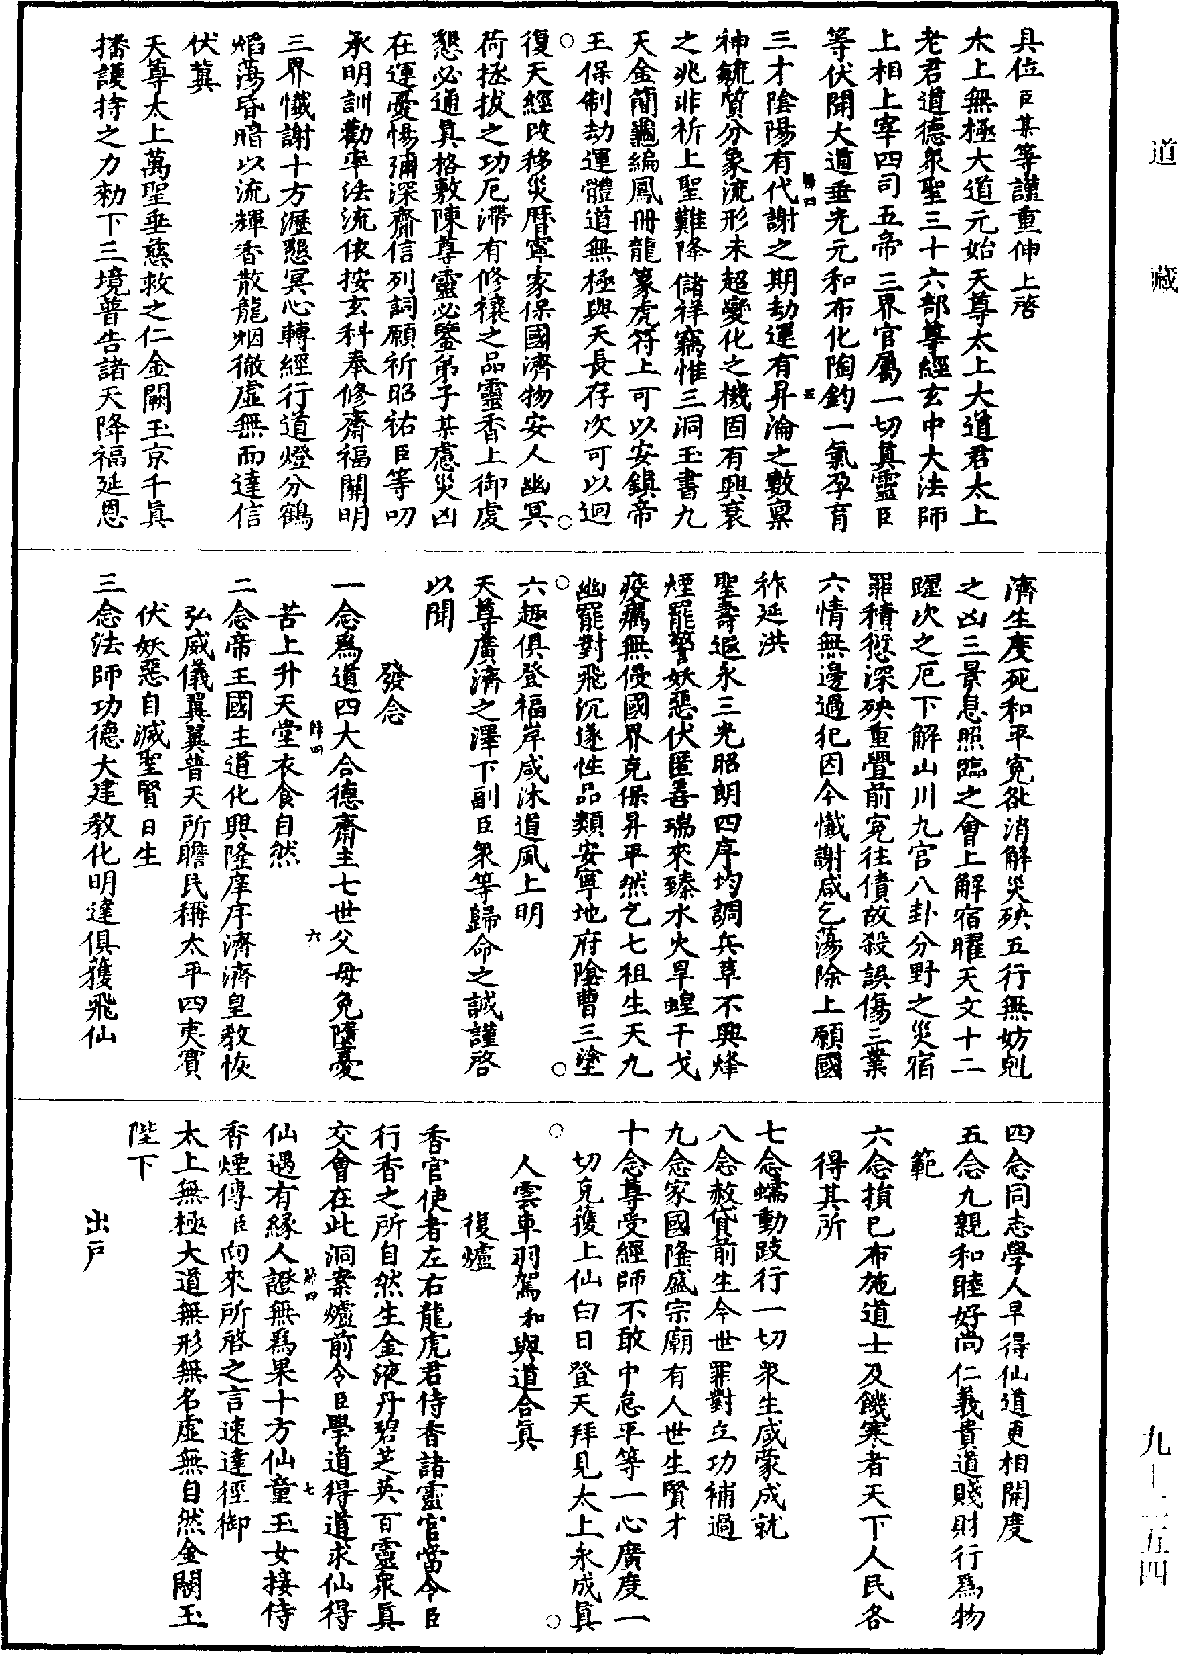 道藏
具位臣某等謹重伸上啓
太上無極大道元始天尊太上大道君太上
老君道德衆聖三十六部尊經玄中大法師
上相上宰四司五帝三界官屬一切真靈臣
等伏聞大道垂光元和布化陶鈞一氣孕育
三才陰陽有代謝之期劫運有昇淪之數稟
神毓質分象流形未超變化之機固有興衰
之兆非祈上聖難降儲祥竊惟三洞玉書九
天金簡龜編鳳冊龍篆虎符上可以安鎮帝
王保制劫運體道無極與天長存次可以迴
復天經改移災曆寧家保國濟物安人幽冥
荷拯拔之功厄滯有修禳之品靈香上御虔
懇必通真格敷陳尊靈必鑒弟子某慮災凶
在運憂惕彌深齋信列詞願祈昭祐臣等叨
承明訓勸率法流依按玄科奉修齋福關明
三界懺謝十方瀝懇冥心轉經行道燈分鶴
焰蕩昏暗以流輝香散龍烟徹虛無而達信
伏冀
天尊太上萬聖垂慈救之仁金闕玉京千真
播護持之力勑下三境普告諸天降福延恩
濟生度死和平寃訟消解災殃五行無妨剋
之凶三景息照臨之會上解宿曜天文十二
躔次之厄下解山川九宮八卦分野之災宿
罪積愆深殃重舋前寃往債故殺誤傷三業
六情無邊過犯因今懺謝咸乞蕩除上願國
祚延洪
聖壽遐永三光昭朗四序均調兵革不興烽
煙罷警妖惡伏匿善瑞來臻水火旱蝗干戈
疫癘無侵國界克保昇平然乞七祖生天九
幽罷對飛沉遂性品類安寧地府陰曹三塗
六趣俱登福岸咸沐道風上明
天尊廣濟之澤下副臣衆等歸命之誠謹啓
以聞
發念
一念爲道四大合德齋主七世父母免隳憂
苦上升天堂衣食自然
二念帝王國主道化興隆庠序濟濟皇教恢
弘威儀翼翼普天所瞻民稱太平四夷賓
伏妖惡自滅聖賢日生
三念法師功德大建教化明達俱獲飛仙
四念同志學人早得仙道更相開度
五念九親和睦好尚仁義貴道賤財行爲物
範
六念損己布施道士及饑寒者天下人民各
得其所
七念蠕動跂行一切衆生咸蒙成就
八念赦貸前生今世罪對立功補過
九念家國隆盛宗廟有人世生賢才
十念尊受經師不敢中怠平等一心廣度一
切克獲上仙白日登天拜見太上永成真
人雲車羽駕和與道合真
復爐
香官使者左右龍虎君侍香諸靈官當令臣
行香之所自然生金液丹碧芝英百靈衆真
交會在此洞案爐前令臣學道得道求仙得
仙遇有緣人證無爲果十方仙童玉女接侍
香煙傳臣向來所啓之言速達徑御
太上無極大道無形無名虛無自然金闕玉
陛下
出戶